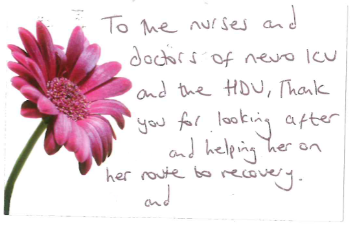 To the nurses and
doctors of neuro ICU
and the HDU, Thank
you for looking after
and helping her on
her route to recovery.
and